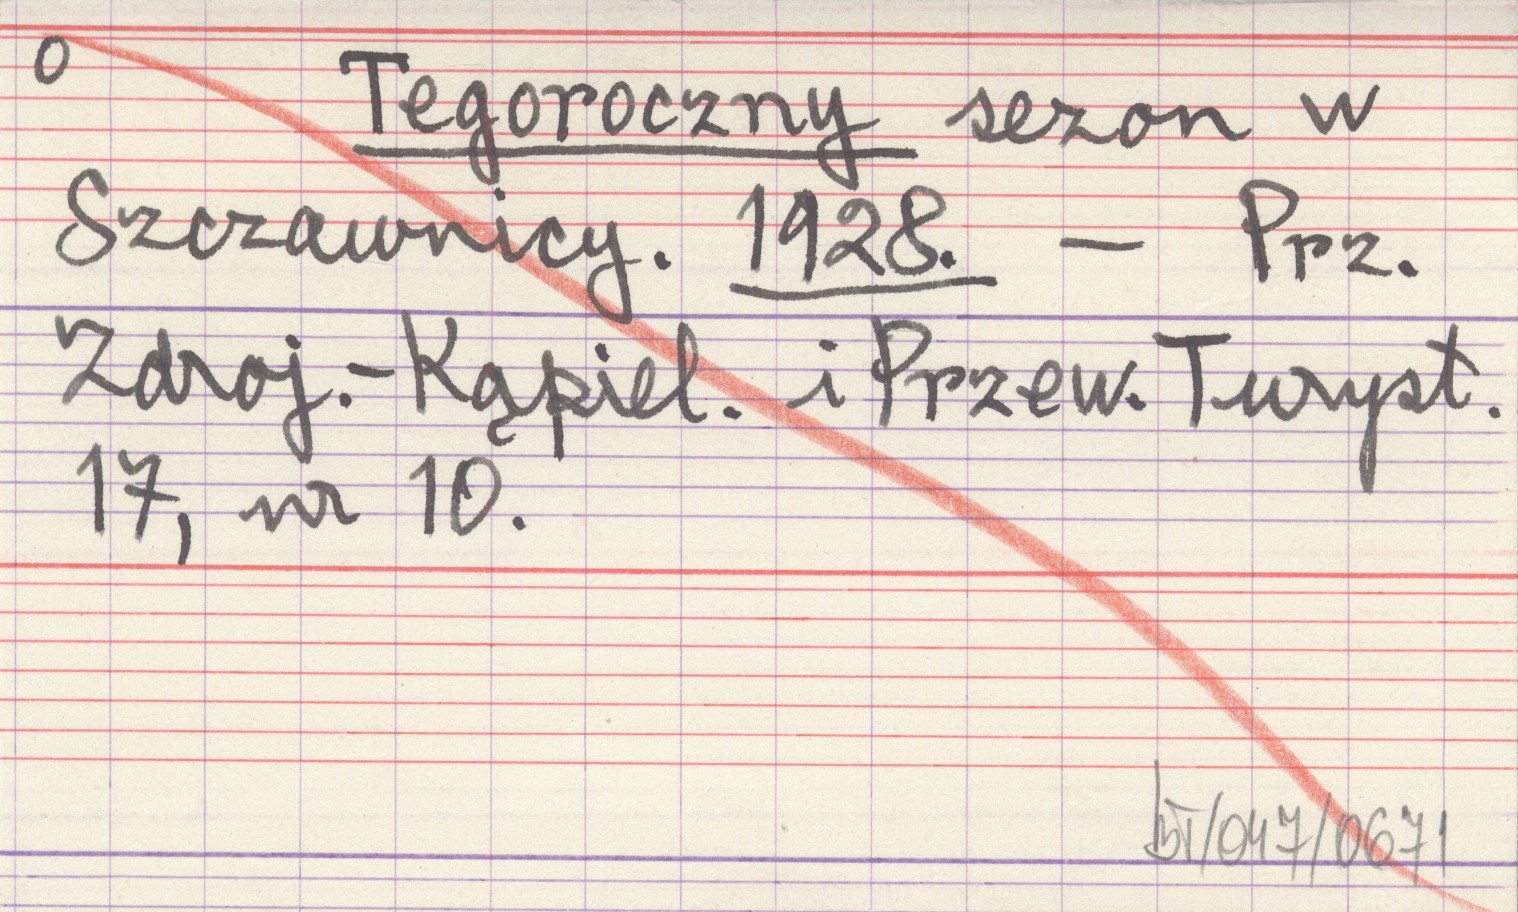 0
Tegoroczny sezon w
Szczawnicy. 1928. — Prz.
Zdroj.-Kąpiel. i Przew. Turyst.
17, nr 10.
bT/047/0671